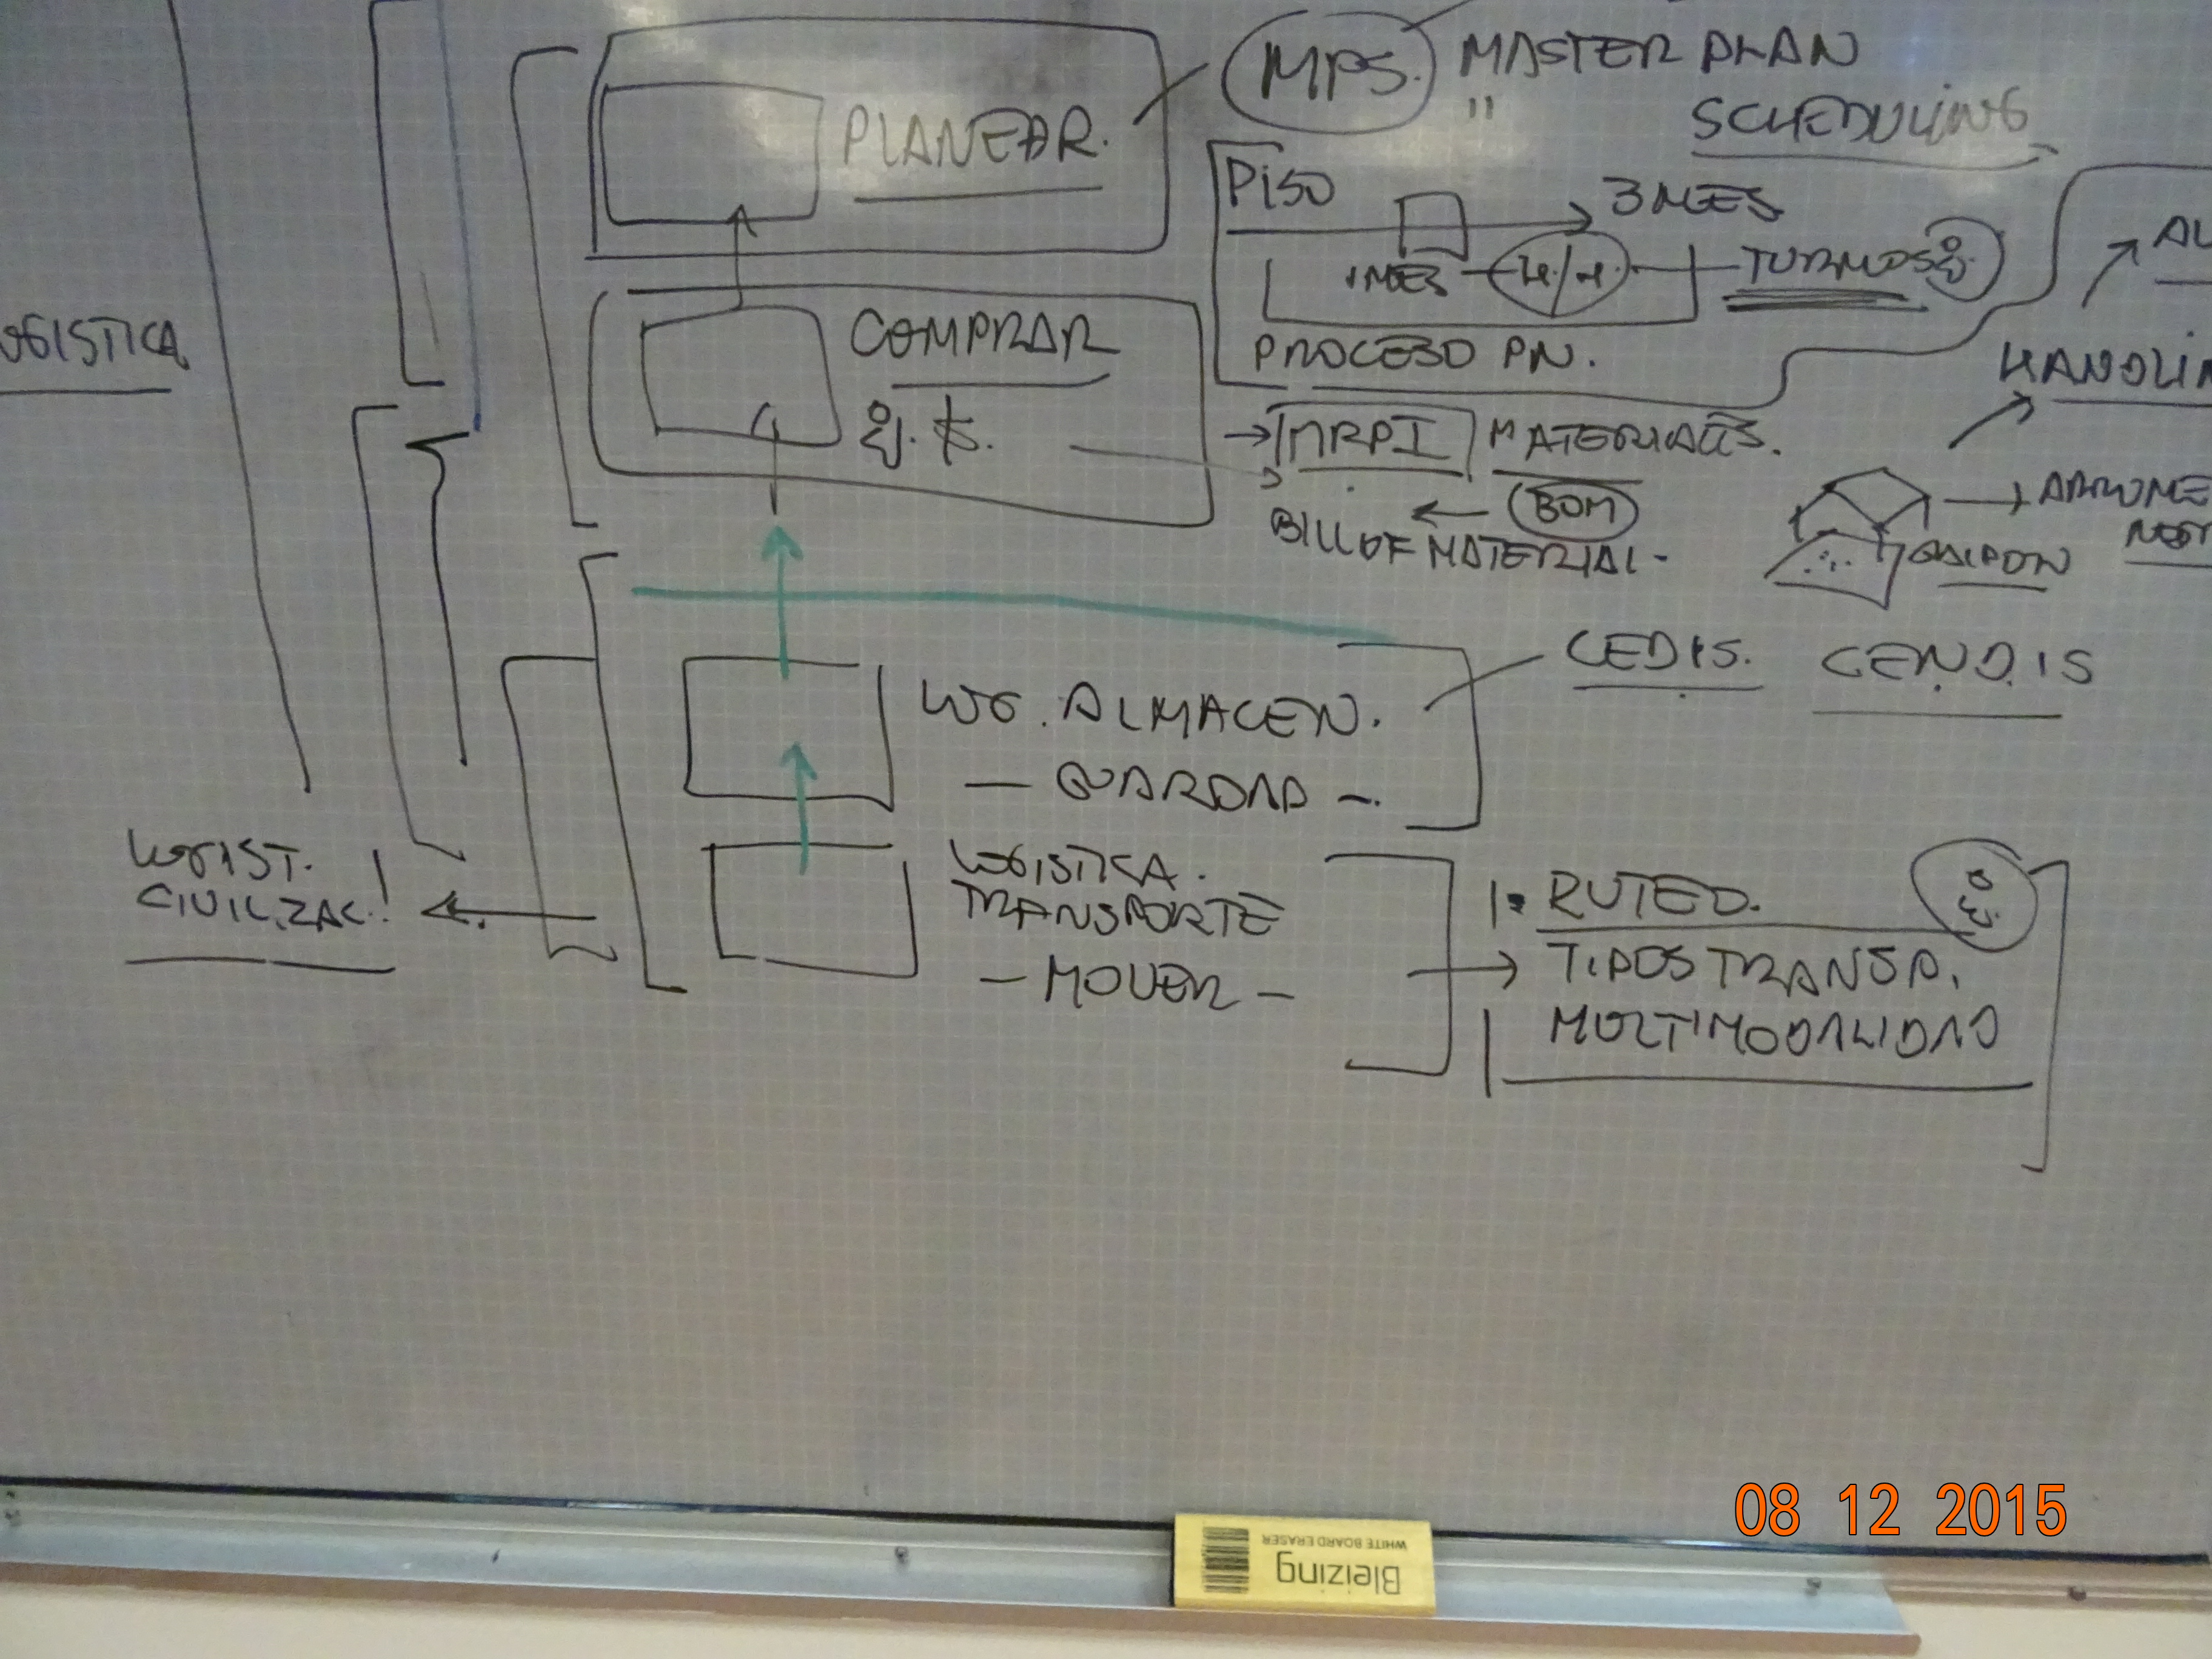 MPS. MASTER PLAN
" SCHEDULING
PLANEAR.
PISO
3 MES
1 MES
TURNOS
PROCESO PN.
COMPRAR
MRPI MATERIALES.
BOM
BILL OF MATERIAL-
GALPON
CEDIS. CENDIS
LOG. ALMACEN.
- GUARDAR -.
LOGIST.
CIVILIZAC.!
LOGISTICA.
TRANSPORTE
- MOVER -
RUTEO.
TIPOS TRANSP.
MULTIMODALIDAD
Bleizing
WHITE BOARD ERASER
08 12 2015